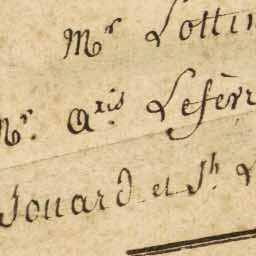 Mr Lottin
Mr. axis Lefèvr
Jouard et Jh L